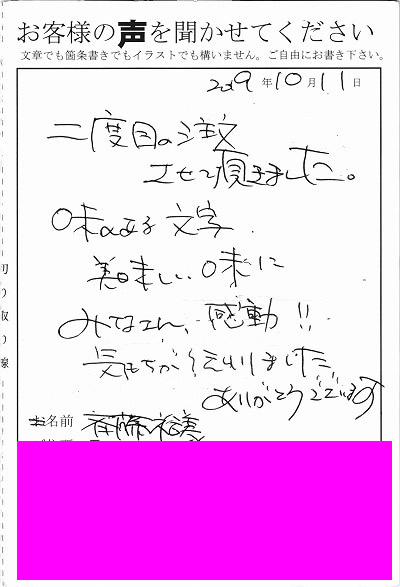 お客様の声を聞かせてください
文章でも箇条書きでもイラストでも構いません。ご自由にお書き下さい。
2019年10月11日
二度目の注文
させて頂きました。
味のある文字
美味しい味に
みなさん、感動!!
気もちが伝わりました
ありがとうございます
お名前 斉藤裕美